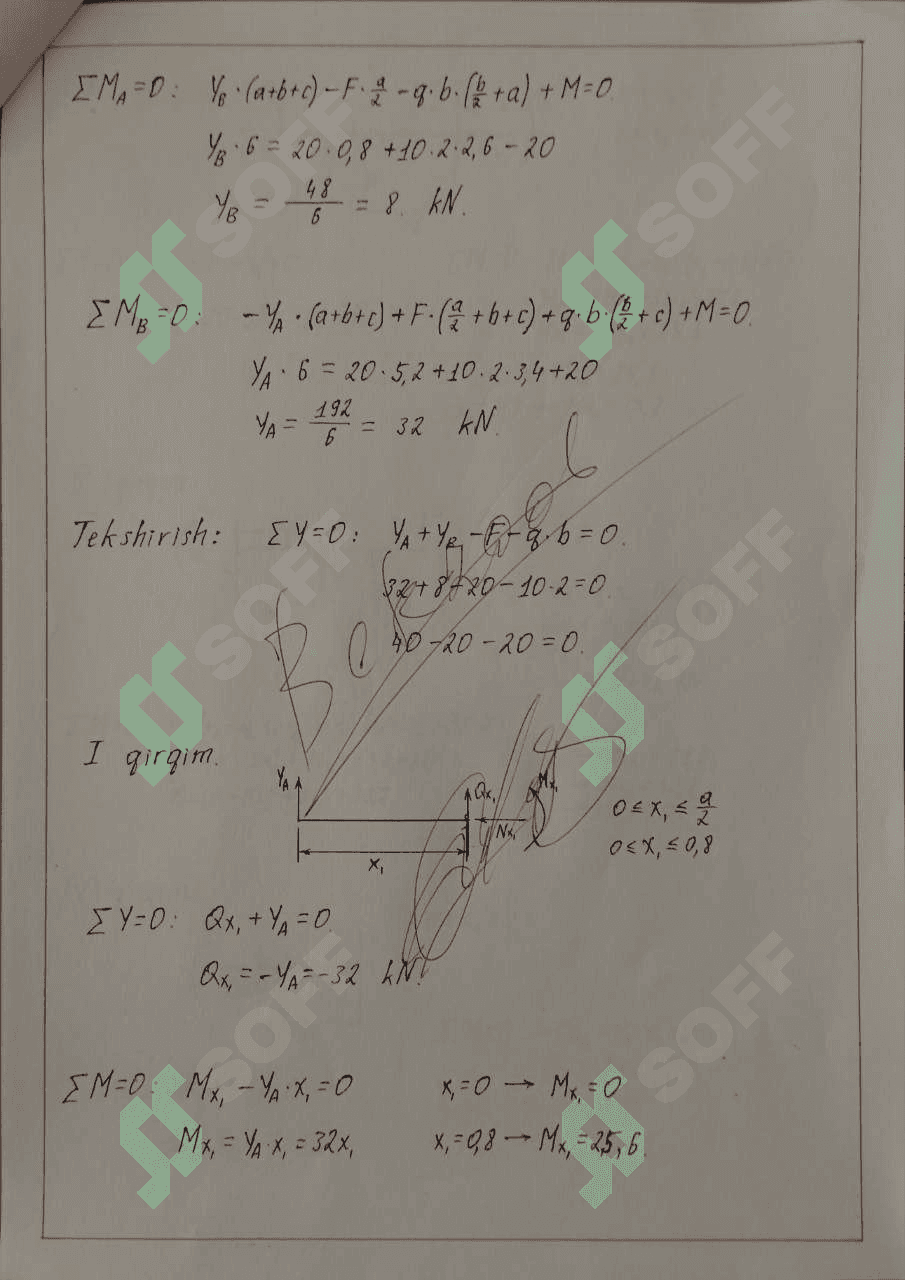 ΣM_A=0: Y_B·(a+b+c)−F·a/2−q·b·(b/2+a)+M=0.
Y_B·6=20·0,8+10·2·2,6−20
Y_B=48/6=8. kN.
ΣM_B=0: −Y_A·(a+b+c)+F·(a/2+b+c)+q·b·(b/2+c)+M=0.
Y_A·6=20·5,2+10·2·3,4+20
Y_A=192/6=32 kN.
Tekshirish: ΣY=0: Y_A+Y_B−F−q·b=0.
32+8−20−10·2=0.
40−20−20=0.
I qirqim.
Y_A Qx₁ Nx₁ Mx₁
x₁
0≤x₁≤a/2
0≤x₁≤0,8
ΣY=0: Qx₁+Y_A=0.
Qx₁=−Y_A=−32 kN.
ΣM=0: Mx₁−Y_A·x₁=0 x₁=0→Mx₁=0
Mx₁=Y_A·x₁=32x₁ x₁=0,8→Mx₁=25,6.
SOFF
SOFF
SOFF
SOFF
SOFF
SOFF